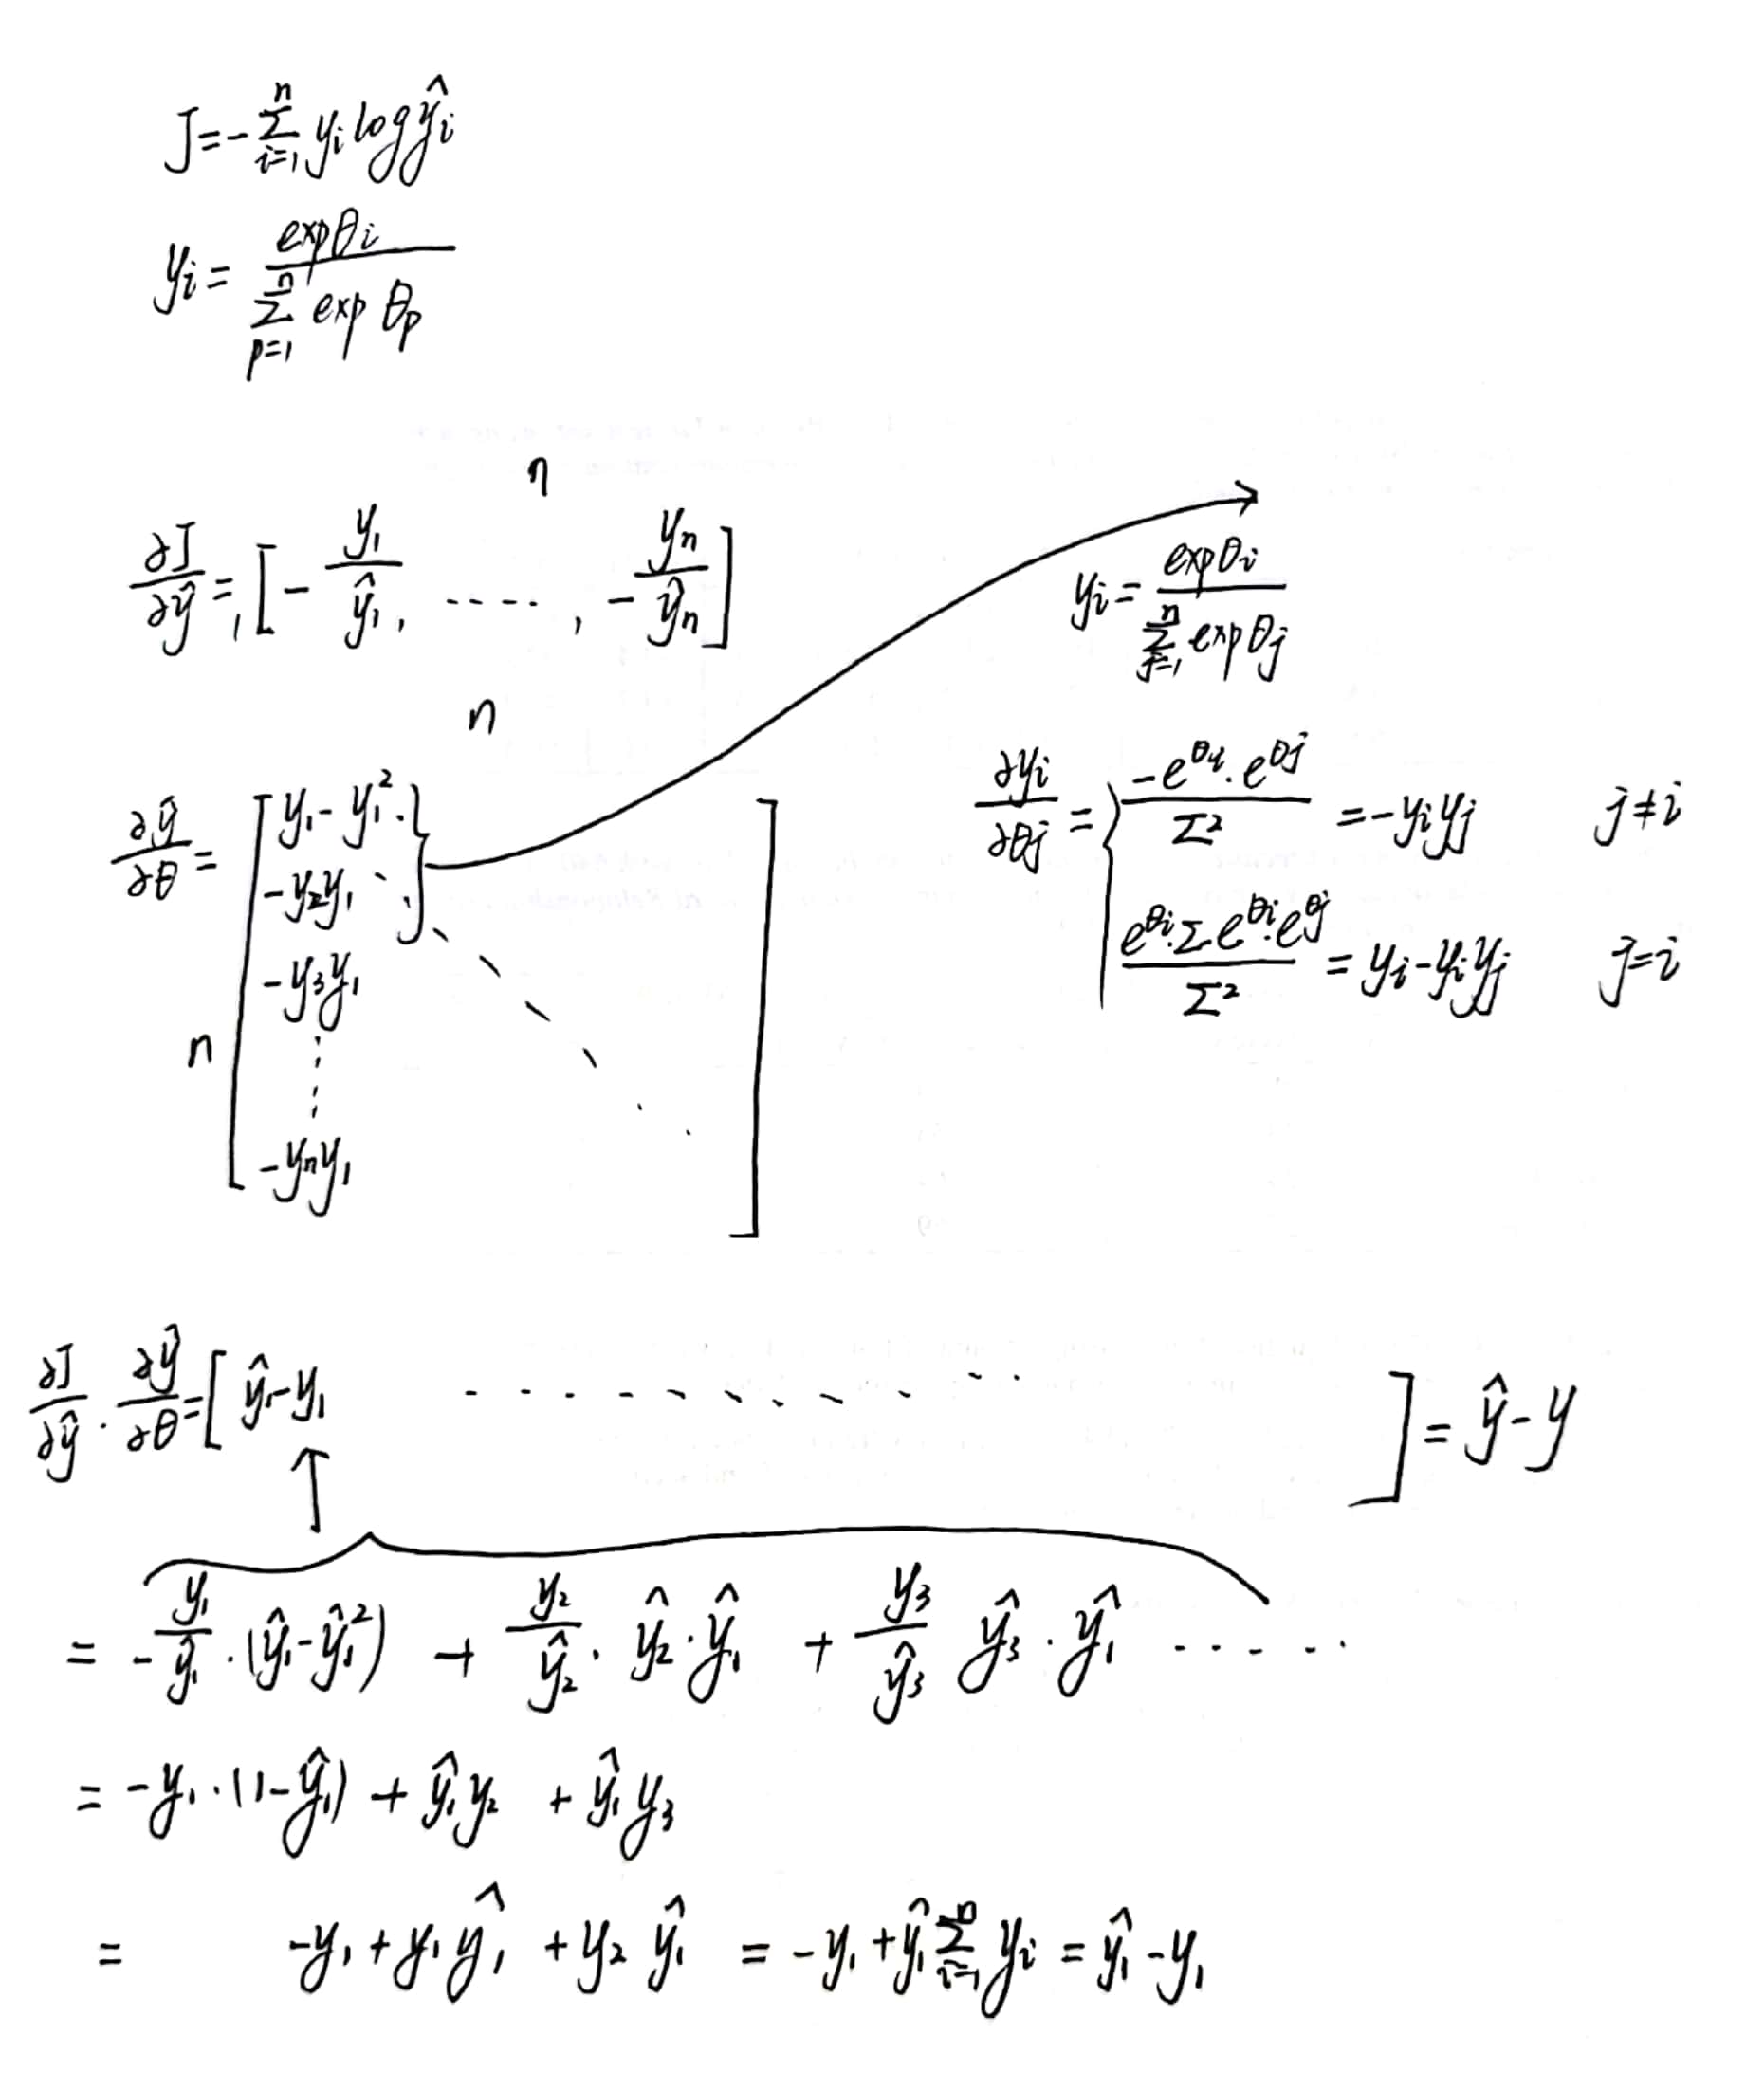 J = - \sum_{i=1}^{n} y_i log \hat{y}_i
y_i = \frac{exp θ_i}{\sum_{p=1}^{n} exp θ_p}
n
\frac{∂J}{∂\hat{y}} = 1 [ - \frac{y_1}{\hat{y}_1}, ....., - \frac{y_n}{\hat{y}_n} ]
y_i = \frac{exp θ_i}{\sum_{j=1}^{n} exp θ_j}
n
\frac{∂\hat{y}}{∂θ} = n [ y_1 - y_1^2
- y_2 y_1
- y_3 y_1
⋮
- y_n y_1 ]
\frac{∂y_i}{∂θ_j} = { \frac{- e^{θ_i} · e^{θ_j}}{Σ^2} = - y_i y_j   j ≠ i
\frac{e^{θ_i} · Σ e^{θ_i} · e^{θ_j}}{Σ^2} = y_i - y_i y_j   j = i
\frac{∂J}{∂\hat{y}} · \frac{∂\hat{y}}{∂θ} = [ \hat{y}_1 - y_1 ............ ] = \hat{y} - y
= - \frac{y_1}{\hat{y}_1} · (\hat{y}_1 - \hat{y}_1^2) + \frac{y_2}{\hat{y}_2} · \hat{y}_2 · \hat{y}_1 + \frac{y_3}{\hat{y}_3} \hat{y}_3 · \hat{y}_1 ......
= - y_1 · (1 - \hat{y}_1) + \hat{y}_1 y_2 + \hat{y}_1 y_3
= - y_1 + y_1 \hat{y}_1 + y_2 \hat{y}_1 = - y_1 + \hat{y}_1 \sum_{i=1}^{n} y_i = \hat{y}_1 - y_1